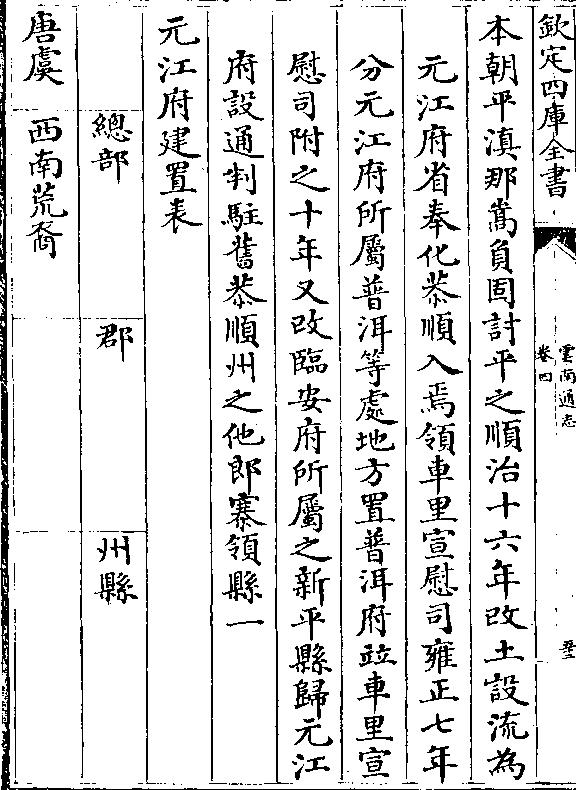 欽定四庫全書
雲南通志
卷四
本朝平滇那嵩負固討平之順治十六年改土設流為
元江府省奉化恭順入焉領車里宣慰司雍正七年
分元江府所屬普洱等處地方置普洱府竝車里宣
慰司附之十年又改臨安府所屬之新平縣歸元江
府設通判駐舊恭順州之他郎寨領縣一
元江府建置表
總部 郡 州縣
唐虞 西南荒裔